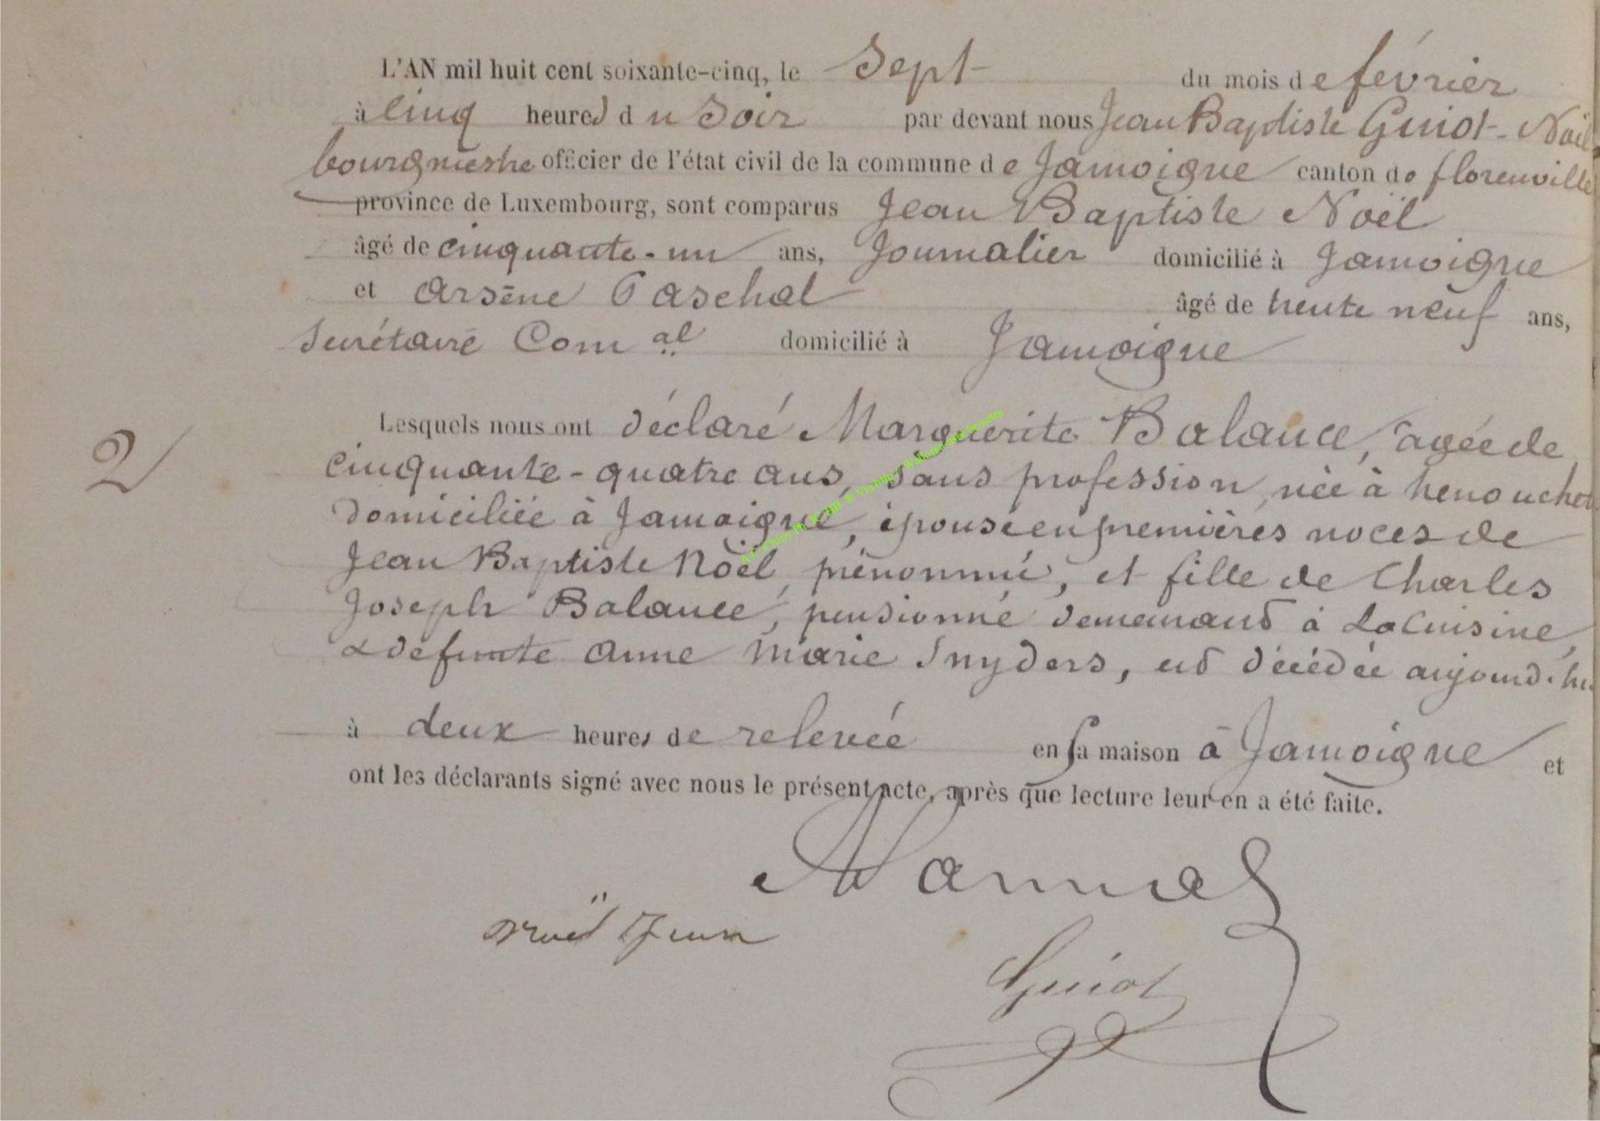 L'AN mil huit cent soixante-cinq, le Sept du mois de février
à cinq heures du Soir par devant nous Jean Baptiste Guiot-Noël
bourgmestre officier de l'état civil de la commune de Jamoigne canton de florenville
province de Luxembourg, sont comparus Jean Baptiste Noël
âgé de cinquante-un ans, Journalier domicilié à Jamoigne
et Arsène Paschal âgé de trente neuf ans,
Secrétaire Com al domicilié à Jamoigne
2
Lesquels nous ont déclaré Marguerite Balance, âgée de
cinquante-quatre ans, sans profession née à
domiciliée à Jamoigne, épouse en premières noces de
Jean Baptiste Noël, prénommé, et fille de Charles
Joseph Balance, pensionné demeurant à LaCuisine,
& défunte Anne Marie Snyders, est décédée aujourd'hui
à deux heures de relevée en sa maison à Jamoigne et
ont les déclarants signé avec nous le présent acte, après que lecture leur en a été faite.
Noël Jean
Guiot